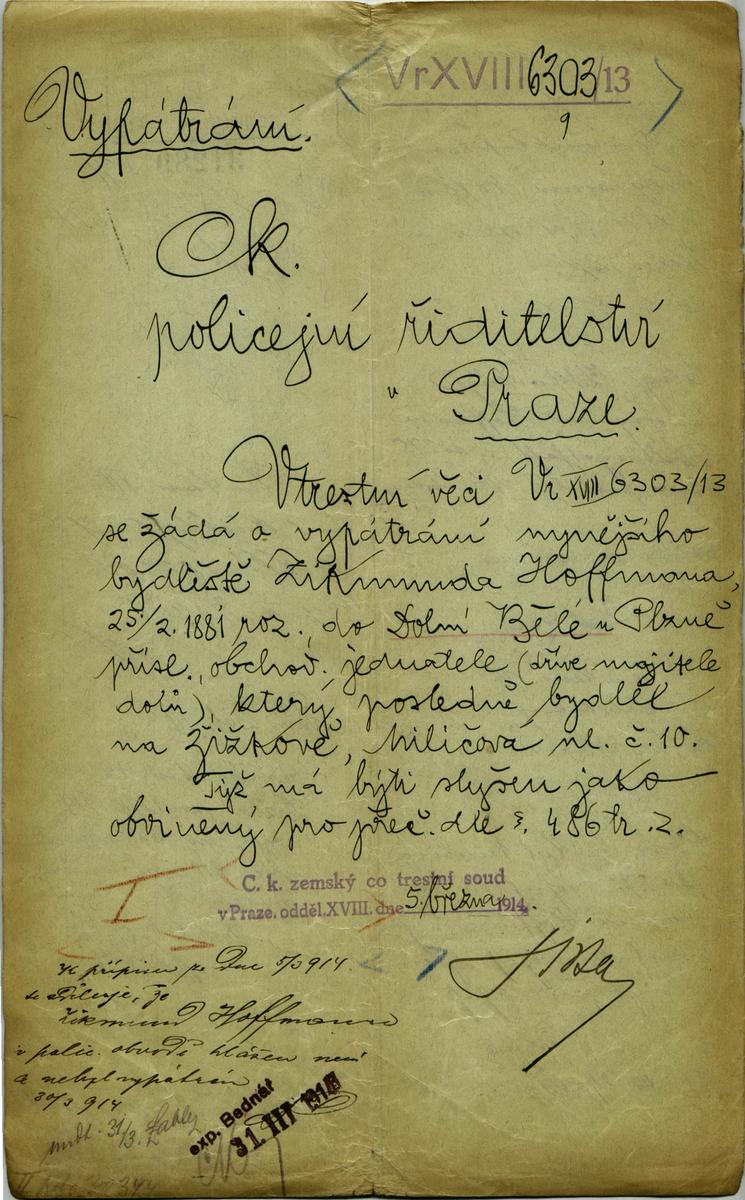 Vr XVIII 6303/13
9
Vypátrání.
Ck.
policejní řiditelství
v Praze.
V trestní věci Vr XVIII 6303/13
se žádá o vypátrání nynějšího
bydliště Zikmunda Hoffmana,
25./2. 1881 roz., do Dolní Bělé u Plzně
přísl., obchod. jednatele (dříve majitele
dolů), který posledně bydlel
na Žižkově, Miličova ul. č. 10.
Týž má býti slyšen jako
obviněný pro přeč. dle §. 486 tr. z.
I
C. k. zemský co trestní soud
v Praze. odděl. XVIII. dne 5. března 1914.
K přípisu ze dne 5/3 914.
se sděluje, že
Zikmund Hoffmann
v polic. obvodě hlášen není
a nebyl vypátrán
30/3 914
exp. Bednář
31. III 1914
31/3.